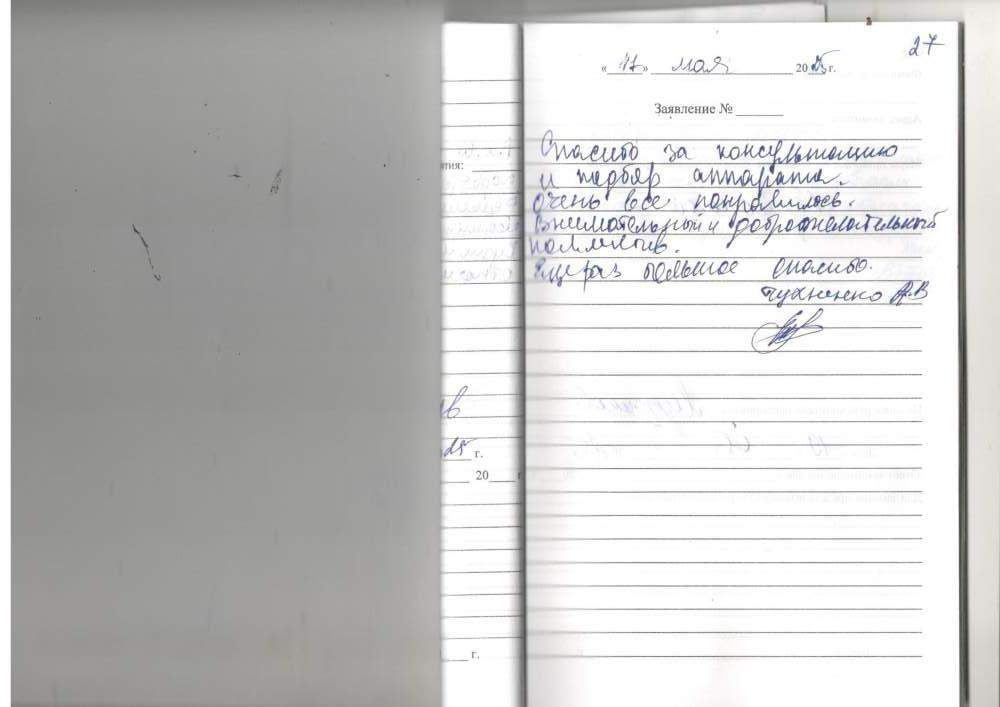 27
« 17 » мая 2025 г.
Заявление №
Спасибо за консультацию
и подбор аппарата.
очень все понравилось.
Внимательный и доброжелательный
коллектив.
Еще раз большое спасибо.
А.В
тия:
25 г.
20 г
г.